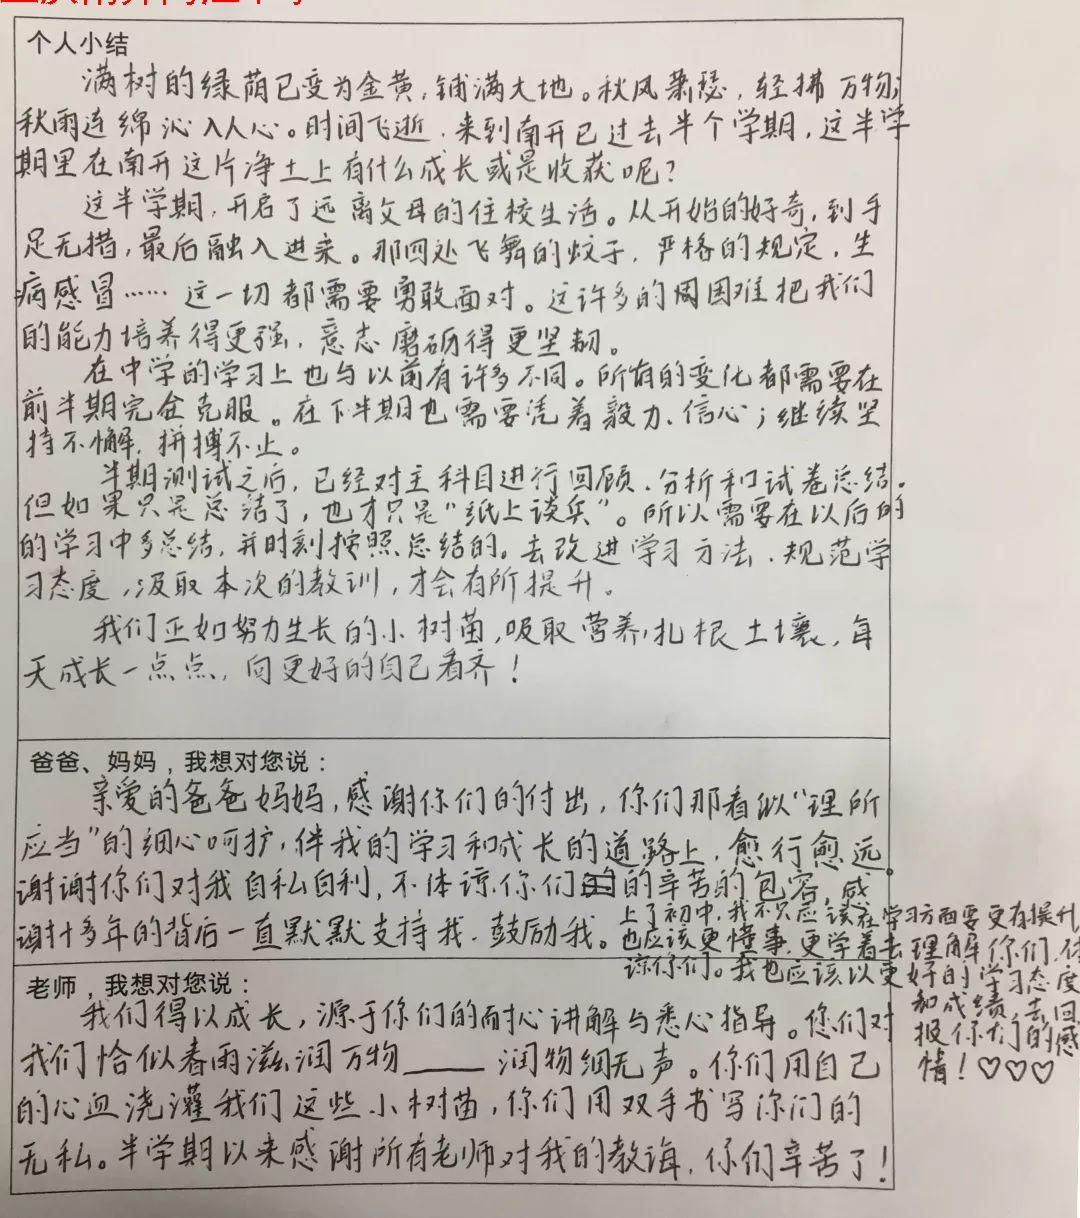 个人小结
满树的绿荫已变为金黄,铺满大地。秋风萧瑟,轻拂万物;
秋雨连绵沁入人心。时间飞逝,来到南开已过去半个学期,这半学
期里在南开这片净土上有什么成长或是收获呢?
这半学期,开启了远离父母的住校生活。从开始的好奇,到手
足无措,最后融入进来。那四处飞舞的蚊子,严格的规定,生
病感冒……这一切都需要勇敢面对。这许多的困难把我们
的能力培养得更强,意志磨砺得更坚韧。
在中学的学习上也与以前有许多不同。所有的变化都需要在
前半期完全克服。在下半期也需要凭着毅力、信心;继续坚
持不懈,拼搏不止。
半期测试之后,已经对主科目进行回顾、分析和试卷总结。
但如果只是总结了,也才只是“纸上谈兵”。所以需要在以后的
的学习中多总结,并时刻按照总结的。去改进学习方法、规范学
习态度,汲取本次的教训,才会有所提升。
我们正如努力生长的小树苗,吸取营养,扎根土壤,每
天成长一点点,向更好的自己看齐!
爸爸、妈妈,我想对您说:
亲爱的爸爸妈妈,感谢你们的付出,你们那看似“理所
应当”的细心呵护,伴我的学习和成长的道路上,愈行愈远。
谢谢你们对我自私自利,不体谅你们的辛苦的包容,感
谢十多年的背后一直默默支持我、鼓励我。
上了初中,我不只应该在学习方面要更有提升
也应该更懂事,更学着去理解你们,体
谅你们。我也应该以更好的学习态度
和成绩,去回
报你们的感
情!♡♡♡
老师,我想对您说:
我们得以成长,源于你们的耐心讲解与悉心指导。您们对
我们恰似春雨滋润万物——润物细无声。你们用自己
的心血浇灌我们这些小树苗,你们用双手书写你们的
无私。半学期以来感谢所有老师对我的教诲,你们辛苦了!